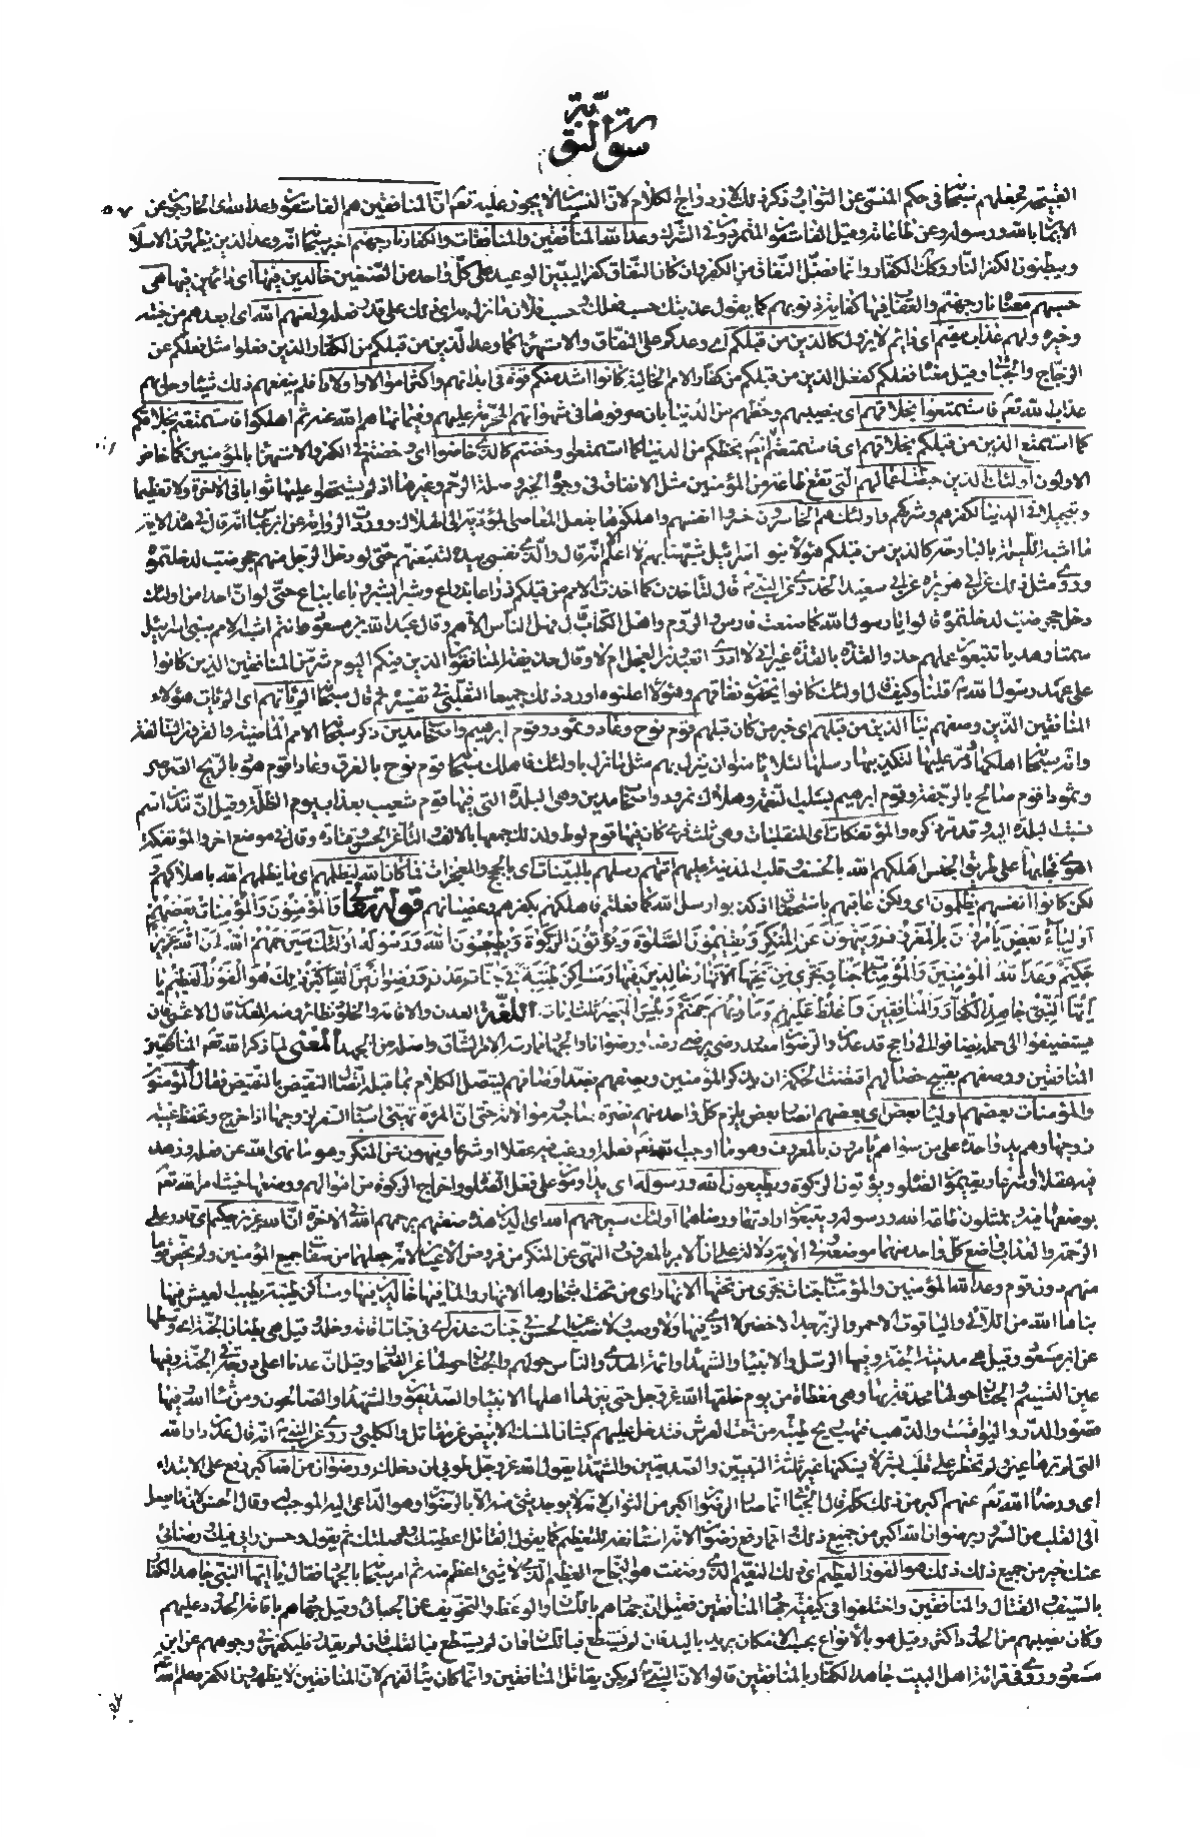 سورة التوبة
القيمة فجعلهم سبحانه في حكم المنسي عن الثواب وذكر ذلك لازدواج الكلام لان النسيان لا يجوز عليه تعم ان المنافقين هم الفاسقون وعدا لله اي الخارجون عن
الايمان بالله ورسوله وعن طاعاته وقيل الفاسقون المتمردون في الشرك وعد الله المنافقين والمنافقات والكفار نار جهنم اخبر سبحانه انه وعد الذين يظهرون الاسلام
ويبطنون الكفر النار وكذلك الكفار وانما فصل النفاق من الكفر وان كان النفاق كفرا ليبين الوعيد على كل واحد من الصنفين خالدين فيها اي دائمين فيها هي
حسبهم معناه نار جهنم والعقاب فيها كفاية ذنوبهم كما يقول عذبتك حسب فعلك وحسب فلان ما نزل به اي ذلك على قدر فعله ولعنهم الله اي ابعدهم من جنته
وخيره ولهم عذاب مقيم اي دائم لا يزول كالذين من قبلكم اي وعدكم على النفاق والاستهزاء كما وعد الذين من قبلكم من الكفار الذين فعلوا مثل فعلكم عن
الزجاج والجبائي وقيل معناه فعلكم كفعل الذين من قبلكم من كفار الامم الخالية كانوا اشد منكم قوة في ابدانهم واكثر اموالا واولادا فلم ينفعهم ذلك شيئا وحل بهم
عذاب الله تعم فاستمتعوا بخلاقهم اي بنصيبهم وحظهم من الدنيا بان صرفوها في شهواتهم المحرمة عليهم وفيما نهاهم الله عنه ثم اهلكوا فاستمتعتم بخلاقكم
كما استمتع الذين من قبلكم بخلاقهم اي فاستمتعتم انتم بحظكم من الدنيا كما استمتعوا وخضتم كالذي خاضوا اي وخضتم في الكفر والاستهزاء بالمؤمنين كما خاض
الاولون اولئك الذين حبطت اعمالهم التي تقع طاعة من المؤمنين مثل الانفاق في وجوه الخير وصلة الرحم وغيرها اذ لم يستحقوا عليها ثوابا في الاخرة ولا تعظيما
وتبجيلا في الدنيا لكفرهم وشركهم واولئك هم الخاسرون خسروا انفسهم واهلكوها بفعل المعاصي المؤدية الى الهلاك ووردت الرواية عن ابن عباس انه قال في هذه الاية
ما اشبه الليلة بالبارحة كالذين من قبلكم هؤلاء بنو اسرائيل شبهنا بهم لا اعلم الا انه قال والذي نفسي بيده لتتبعنهم حتى لو دخل الرجل منهم جحر ضب لدخلتموه
وروي مثل ذلك عن ابي هريرة عن ابي سعيد الخدري عن النبي ص قال لتأخذن كما اخذت الامم من قبلكم ذراعا بذراع وشبرا بشبر وباعا بباع حتى لو ان احدا من اولئك
دخل جحر ضب لدخلتموه قالوا يا رسول الله كما صنعت فارس والروم واهل الكتاب قال فهل الناس الا هم وقال عبد الله بن مسعود انتم اشبه الامم ببني اسرائيل
سمتا وهديا تتبعون عملهم حذو القذة بالقذة غير اني لا ادري اتعبدون العجل ام لا وقال حذيفة المنافقون الذين فيكم اليوم شر من المنافقين الذين كانوا
على عهد رسول الله ص قلنا وكيف قال اولئك كانوا يخفون نفاقهم وهؤلاء اعلنوه اورد ذلك جميعا الثعلبي في تفسيره ثم قال سبحانه الم يأتهم اي الم يأت هؤلاء
المنافقين الذين وصفهم نبأ الذين من قبلهم اي خبر من كان قبلهم قوم نوح وعاد وثمود وقوم ابرهيم واصحاب مدين ذكر سبحانه الامم الماضية والقرون السالفة
وانه سبحانه اهلكها ودمر عليها لتكذيبها رسلها لئلا يأمنوا ان ينزل بهم مثل ما نزل باولئك فاهلك سبحانه قوم نوح بالغرق وعادا قوم هود بالريح الصرصر
وثمودا قوم صالح بالرجفة وقوم ابرهيم بسلب النعمة وهلاك نمرود واصحاب مدين وهي البلدة التي فيها قوم شعيب بعذاب يوم الظلة وقيل ان مدين اسم
نسبت البلدة اليه وقد مر ذكره والمؤتفكات اي المنقلبات وهي ثلث قرى كان فيها قوم لوط ولذلك جمعها بالالف والتاء عن الحسن وقتادة وقال في موضع اخر والمؤتفكة
اهوى فجاء بها على طريق الجنس اهلكهم الله بالخسف وقلب المدينة عليهم اتتهم رسلهم بالبينات اي بالحجج والمعجزات فما كان الله ليظلمهم اي ما يظلمهم الله باهلاكهم
لكن كانوا انفسهم يظلمون اي ولكن عاقبهم باستحقاق اذ كذبوا رسل الله كما فعلتم فاهلكهم بكفرهم وعصيانهم قوله تعالى والمؤمنون والمؤمنات بعضهم
اولياء بعض يأمرون بالمعروف وينهون عن المنكر ويقيمون الصلوة ويؤتون الزكوة ويطيعون الله ورسوله اولئك سيرحمهم الله ان الله عزيز
حكيم وعد الله المؤمنين والمؤمنات جنات تجري من تحتها الانهار خالدين فيها ومساكن طيبة في جنات عدن ورضوان من الله اكبر ذلك هو الفوز العظيم يا
ايها النبي جاهد الكفار والمنافقين واغلظ عليهم ومأويهم جهنم وبئس المصير ثلث ايات اللغة العدن والاقامة والخلود نظائر ومنه المعدن قال الاعشى فان
يستضيفوا الى حلمه يضافوا الى راجح قد عدن والرضوان مصدر رضي يرضى رضا ورضوانا والجهاد ممارسة الامر الشاق واصله من الجهد المعنى لما ذكر الله تعم المنافقين
المنافقين ووصفهم بقبيح خصالهم اقتضت الحكمة ان يذكر المؤمنين ويصفهم بضد اوصافهم ليتصل الكلام بما قبله اتصال النقيض بالنقيض فقال والمؤمنون
والمؤمنات بعضهم اولياء بعض اي بعضهم انصار بعض يلزم كل واحد منهم نصرة صاحبه وموالاته حتى ان المرءة تهيئ اسباب السفر لزوجها اذا خرج وتحفظ غيبة
زوجها وهم يد واحدة على من سواهم يأمرون بالمعروف وهو ما اوجب الله فعله او رغب فيه عقلا او شرعا وينهون عن المنكر وهو ما نهى الله عن فعله وزهد
فيه عقلا او شرعا ويقيمون الصلوة ويؤتون الزكوة ويطيعون الله ورسوله اي يداومون على فعل الصلوة واخراج الزكوة من اموالهم ووضعها حيث امر الله تعم
بوضعها فيه ويمتثلون طاعة الله ورسوله ويتبعون ارادتهما ورضاهما اولئك سيرحمهم الله اي الذين هذه صفتهم يرحمهم الله في الاخرة ان الله عزيز حكيم اي قادر على
الرحمة والعذاب واضع كل واحد منهما موضعه وفي الاية دلالة على ان الامر بالمعروف والنهي عن المنكر من فروض الاعيان لانه جعلهما من صفات جميع المؤمنين ولم يخص قوما
منهم دون قوم وعد الله المؤمنين والمؤمنات جنات تجري من تحتها الانهار اي من تحت اشجارها الانهار والماء فيها خالدين فيها ومساكن طيبة يطيب العيش فيها
بناها الله من اللآلي والياقوت الاحمر والزبرجد الاخضر لا اذى فيها ولا وصب ولا نصب عن الحسن في جنات عدن اي في جنات اقامة وخلد وقيل هي بطنان الجنة اي وسطها
عن ابن مسعود وقيل هي مدينة في الجنة وفيها الرسل والانبياء والشهداء وائمة الهدى والناس حولهم والجنان حولها عن الضحاك وقيل ان عدنا اعلى درجة في الجنة وفيها
عين التسنيم والجنان حولها محدقة بها وهي مغطاة من يوم خلقها الله عز وجل حتى ينزلها اهلها الانبياء والصديقون والشهداء والصالحون ومن شاء الله وفيها
قصور الدر واليواقيت والذهب فتهب ريح طيبة من تحت العرش فتدخل عليهم كثبان المسك الابيض عن مقاتل والكلبي وروي عن النبي ص انه قال عدن دار الله
التي لم ترها عين ولم تخطر على قلب بشر لا يسكنها غير ثلثة النبيين والصديقين والشهداء يقول الله عز وجل طوبى لمن دخلك ورضوان من الله اكبر رفع على الابتداء
اي ورضا الله تعم عنهم اكبر من ذلك كله قال الجبائي انما صار الرضوان اكبر من الثواب لانه لا يوجد شيء منه الا بالرضوان وهو الداعي اليه الموجب له وقال الحسن لان ما يصل
الى القلب من السرور برضوان الله اكبر من جميع ذلك وانما رفع رضوان لانه استأنفه للتعظيم كما يقول القائل اعطيتك ووصلتك ثم يقول وحسن رأيي فيك ورضائي
عنك خير من جميع ذلك ذلك هو الفوز العظيم اي ذلك النعيم الذي وصفت هو النجاح العظيم الذي لا شيء اعظم منه ثم امر سبحانه بالجهاد فقال يا ايها النبي جاهد الكفار
بالسيف والقتال والمنافقين واختلفوا في كيفية جهاد المنافقين فقيل ان جهادهم باللسان والوعظ والتخويف عن الجبائي وقيل جهادهم باقامة الحدود عليهم
وكان نصيبهم من الحدود اكثر وقيل هو بالانواع بحسب الامكان يريد باليد فان لم يستطع فبالسان فان لم يستطع فبالقلب فان لم يقدر فليكفهر في وجوههم عن ابن
مسعود وروي في قراءة اهل البيت جاهد الكفار بالمنافقين قالوا لان النبي ص لم يكن يقاتل المنافقين وانما كان يتألفهم لان المنافقين لا يظهرون الكفر وعلم الله